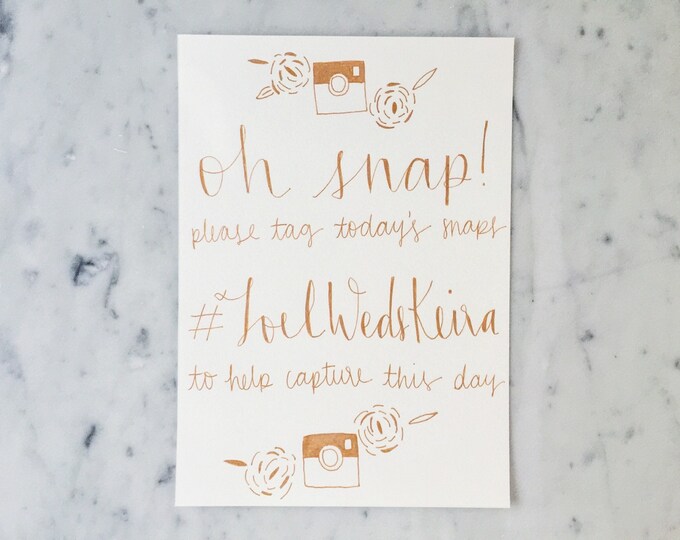 oh snap!
please tag today's snaps
#JoelWedsKeira
to help capture this day